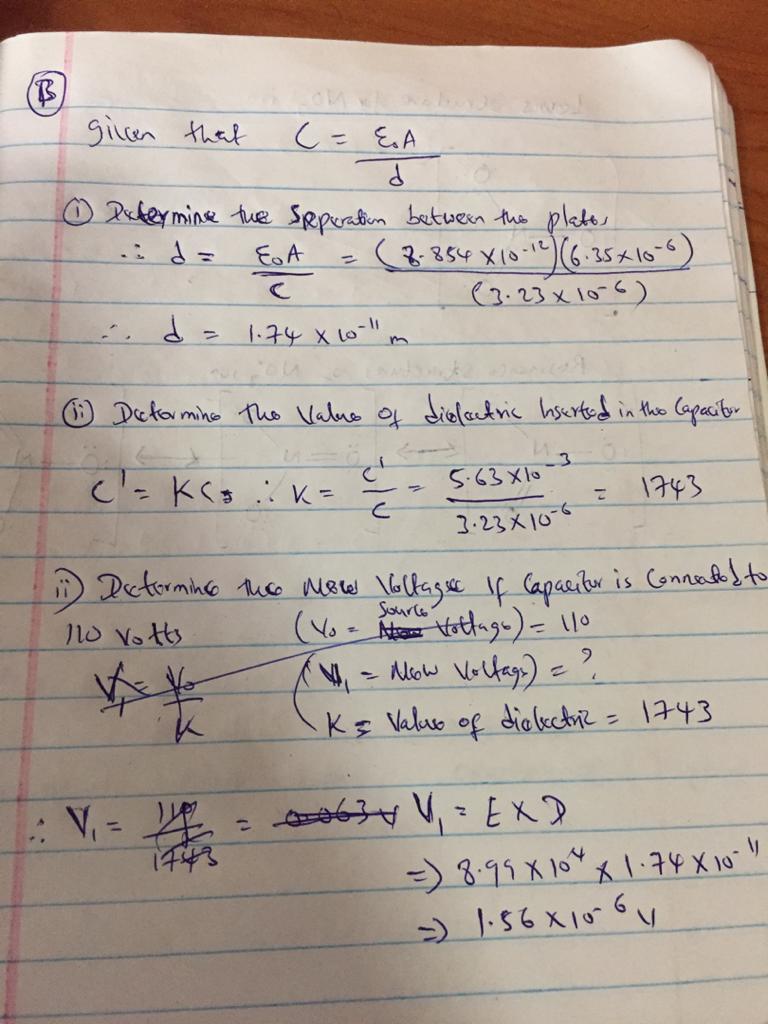 B
given that C = ε₀A / d
(i) Determine the Separation between the plates
∴ d = ε₀A / C = (8.854 X10⁻¹²)(6.35x10⁻⁶) / (3.23 x10⁻⁶)
∴ d = 1.74 x 10⁻¹¹ m
(ii) Determine the Value of dielectric Inserted in the Capacitor
C' = KC ∴ K = C' / C = 5.63 X10⁻³ / 3.23 X10⁻⁶ = 1743
ii) Determine the New Voltage If Capacitor is Connected to
110 Volts (V₀ = Source Voltage) = 110
V₁ = V₀ / K (V₁ = New Voltage) = ?
K = Value of dielectric = 1743
∴ V₁ = 110 / 1743 = 0.063 V V₁ = E X D
=> 8.99 X 10⁴ x 1.74 X 10⁻¹¹
=> 1.56 X 10⁻⁶ V